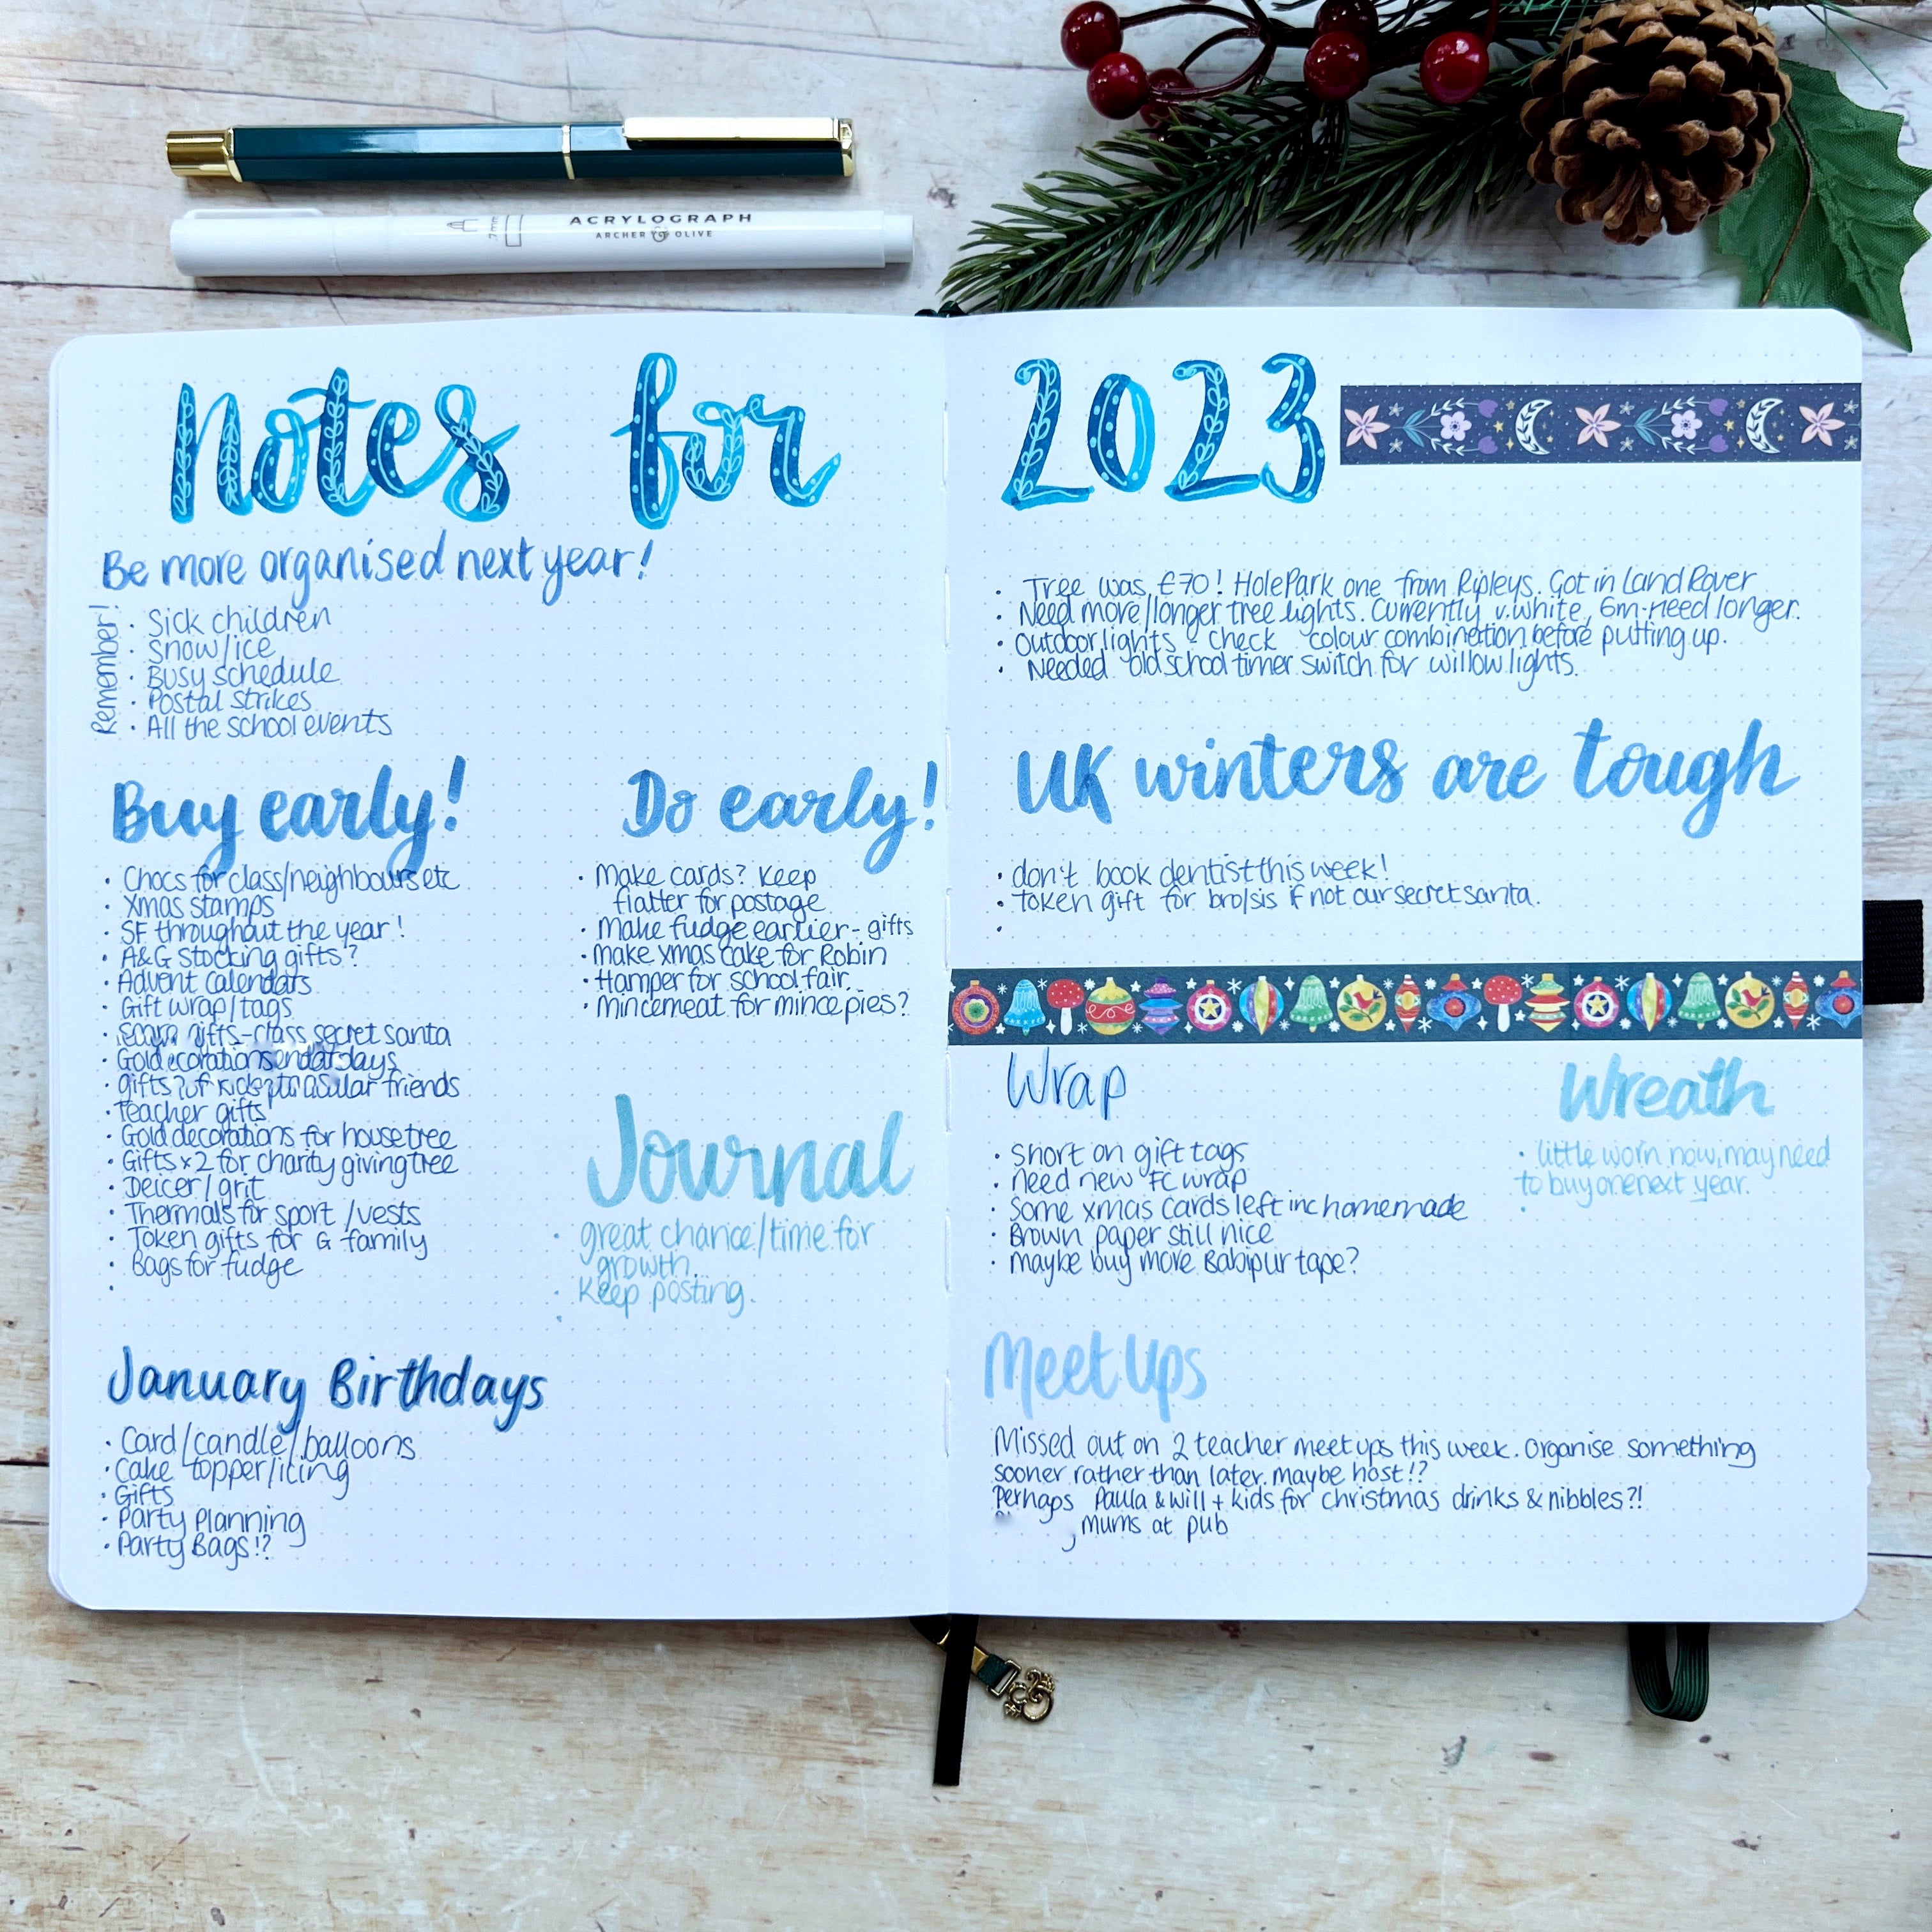 ACRYLOGRAPH
ARCHER & OLIVE
.7mm
Notes for
Be more organised next year!
Remember!
· Sick children
· Snow/ice
· Busy schedule
· Postal strikes
· All the school events
Buy early!
· Chocs for class/neighbours etc
· Xmas stamps
· SF throughout the year!
· A&G stocking gifts?
· Advent calendars
· Gift wrap/tags
· gifts-class secret santa
· Gold decorations
· gifts? of friends
· Teacher gifts
· Gold decorations for house tree
· Gifts x2 for charity giving tree
· Deicer/grit
· Thermals for sport/vests
· Token gifts for G family
· Bags for fudge
·
Do early!
· Make cards? Keep
flatter for postage
· Make fudge earlier - gifts
· make xmas cake for Robin
· Hamper for school fair.
· Mincemeat for mince pies?
Journal
· great chance/time for
growth.
· Keep posting.
·
January Birthdays
· Card/candle/balloons
· Cake topper/icing
· Gifts
· Party Planning
· Party Bags!?
2023
· Tree was £70! Hole Park one from Ripleys. Got in Land Rover
· Need more/longer tree lights. Currently v.white, 6m-need longer.
· Outdoor lights - check colour combination before putting up.
· Needed old school timer switch for willow lights.
UK winters are tough
· don't book dentist this week!
· Token gift for bro/sis if not our secret santa.
·
Wrap
· Short on gift tags
· Need new FC wrap
· Some xmas cards left inc homemade
· Brown paper still nice
· maybe buy more Babipur tape?
Wreath
· little worn now, may need
to buy one next year.
·
Meet Ups
Missed out on 2 teacher meet ups this week. Organise something
sooner rather than later. maybe host!?
Perhaps Paula & Will + kids for christmas drinks & nibbles?!
, mums at pub